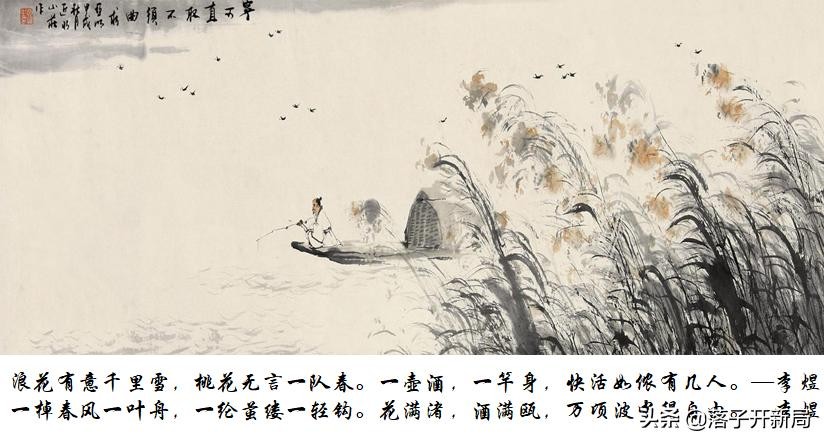 寧可直取不須曲
亚明
甲戌
秋月
浪花有意千里雪，桃花无言一队春。一壶酒，一竿身，快活如侬有几人。—李煜
一掉春风一叶舟，一纶茧缕一轻钩。花满渚，酒满瓯，万顷波中得自由。—李煜
头条 @落子开新局